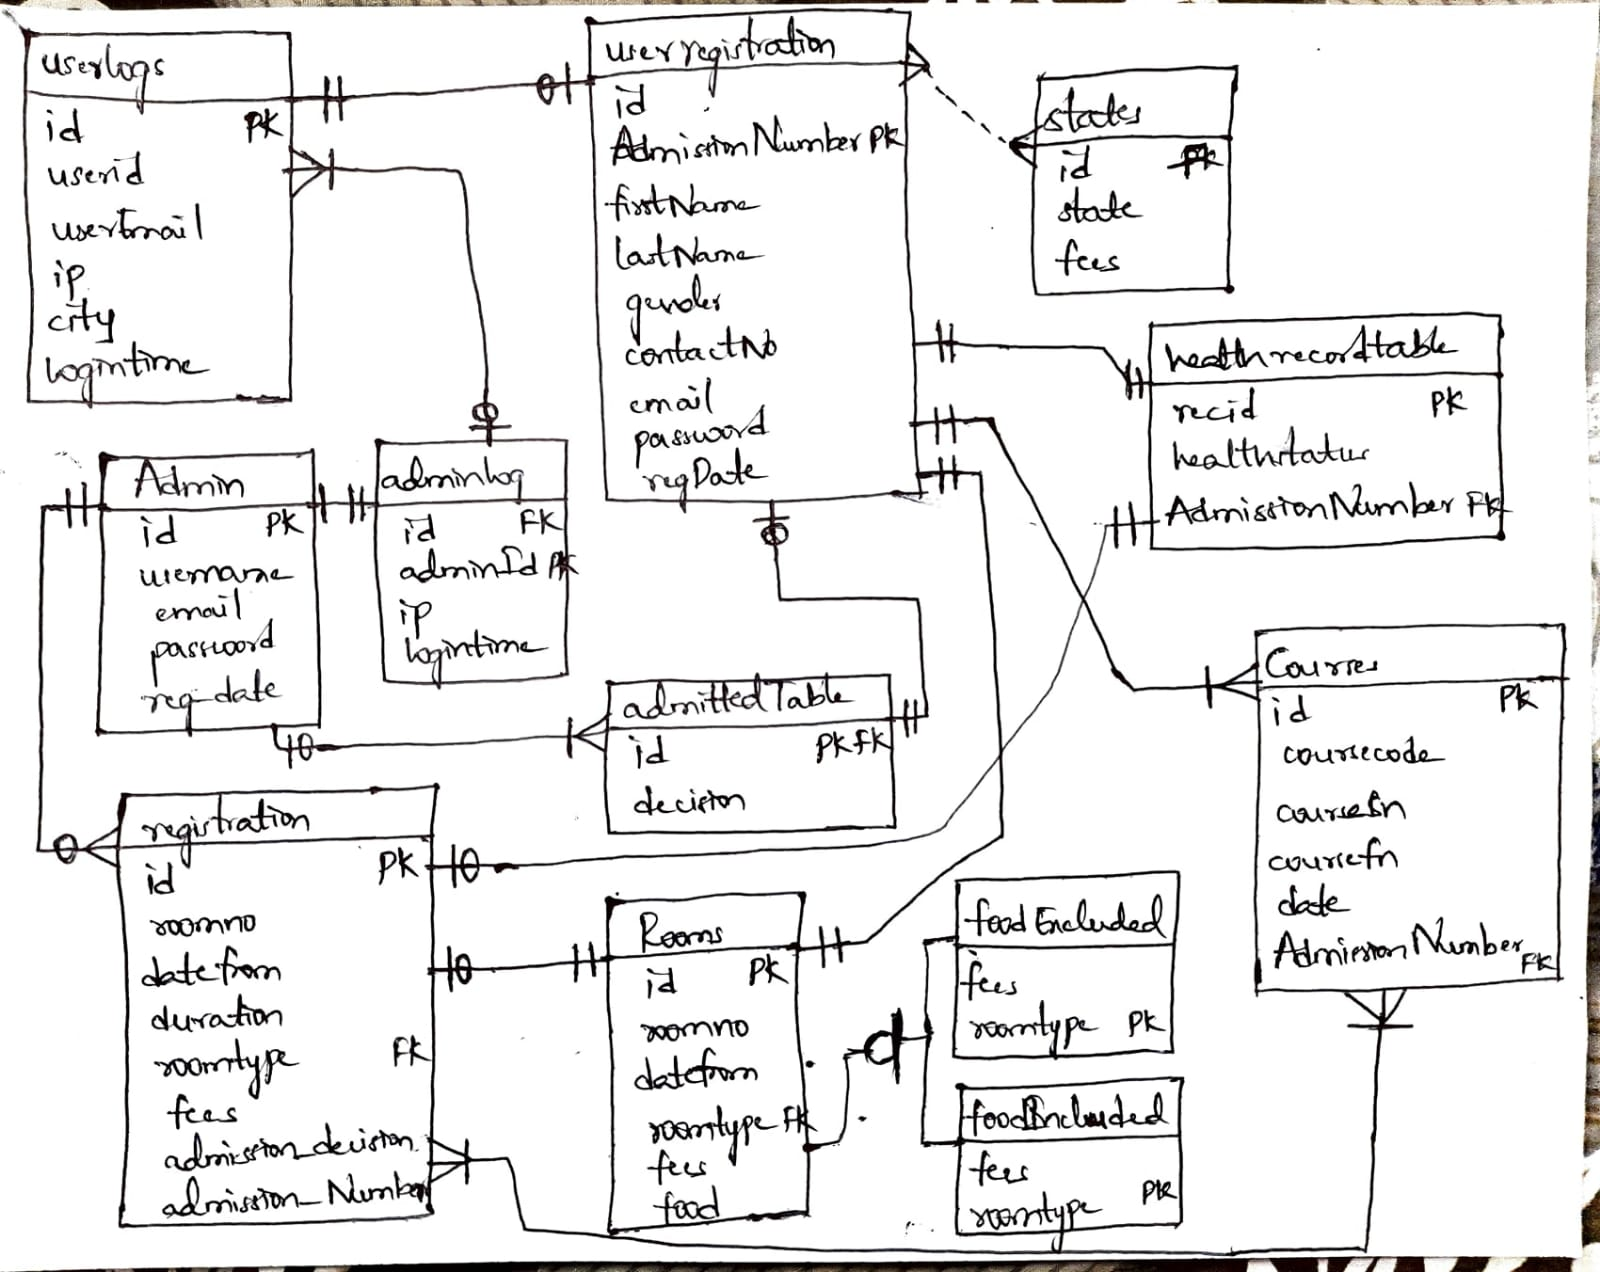 userlogs
id PK
userid
userEmail
ip
city
logintime
userregistration
id
AdmissionNumber PK
firstName
lastName
gender
contactNo
email
password
regDate
states
id PK
state
fees
healthrecordtable
recid PK
healthstatus
AdmissionNumber FK
Admin
id PK
username
email
password
reg-date
adminlog
id FK
adminId PK
ip
logintime
admittedTable
id PK FK
decision
Courses
id PK
coursecode
coursefn
date
AdmissionNumber FK
registration
id PK
roomno
datefrom
duration
roomtype FK
fees
admission_decision
admission_Number
Rooms
id PK
roomno
datefrom
roomtype FK
fees
food
fees
roomtype PK
fees
roomtype PK